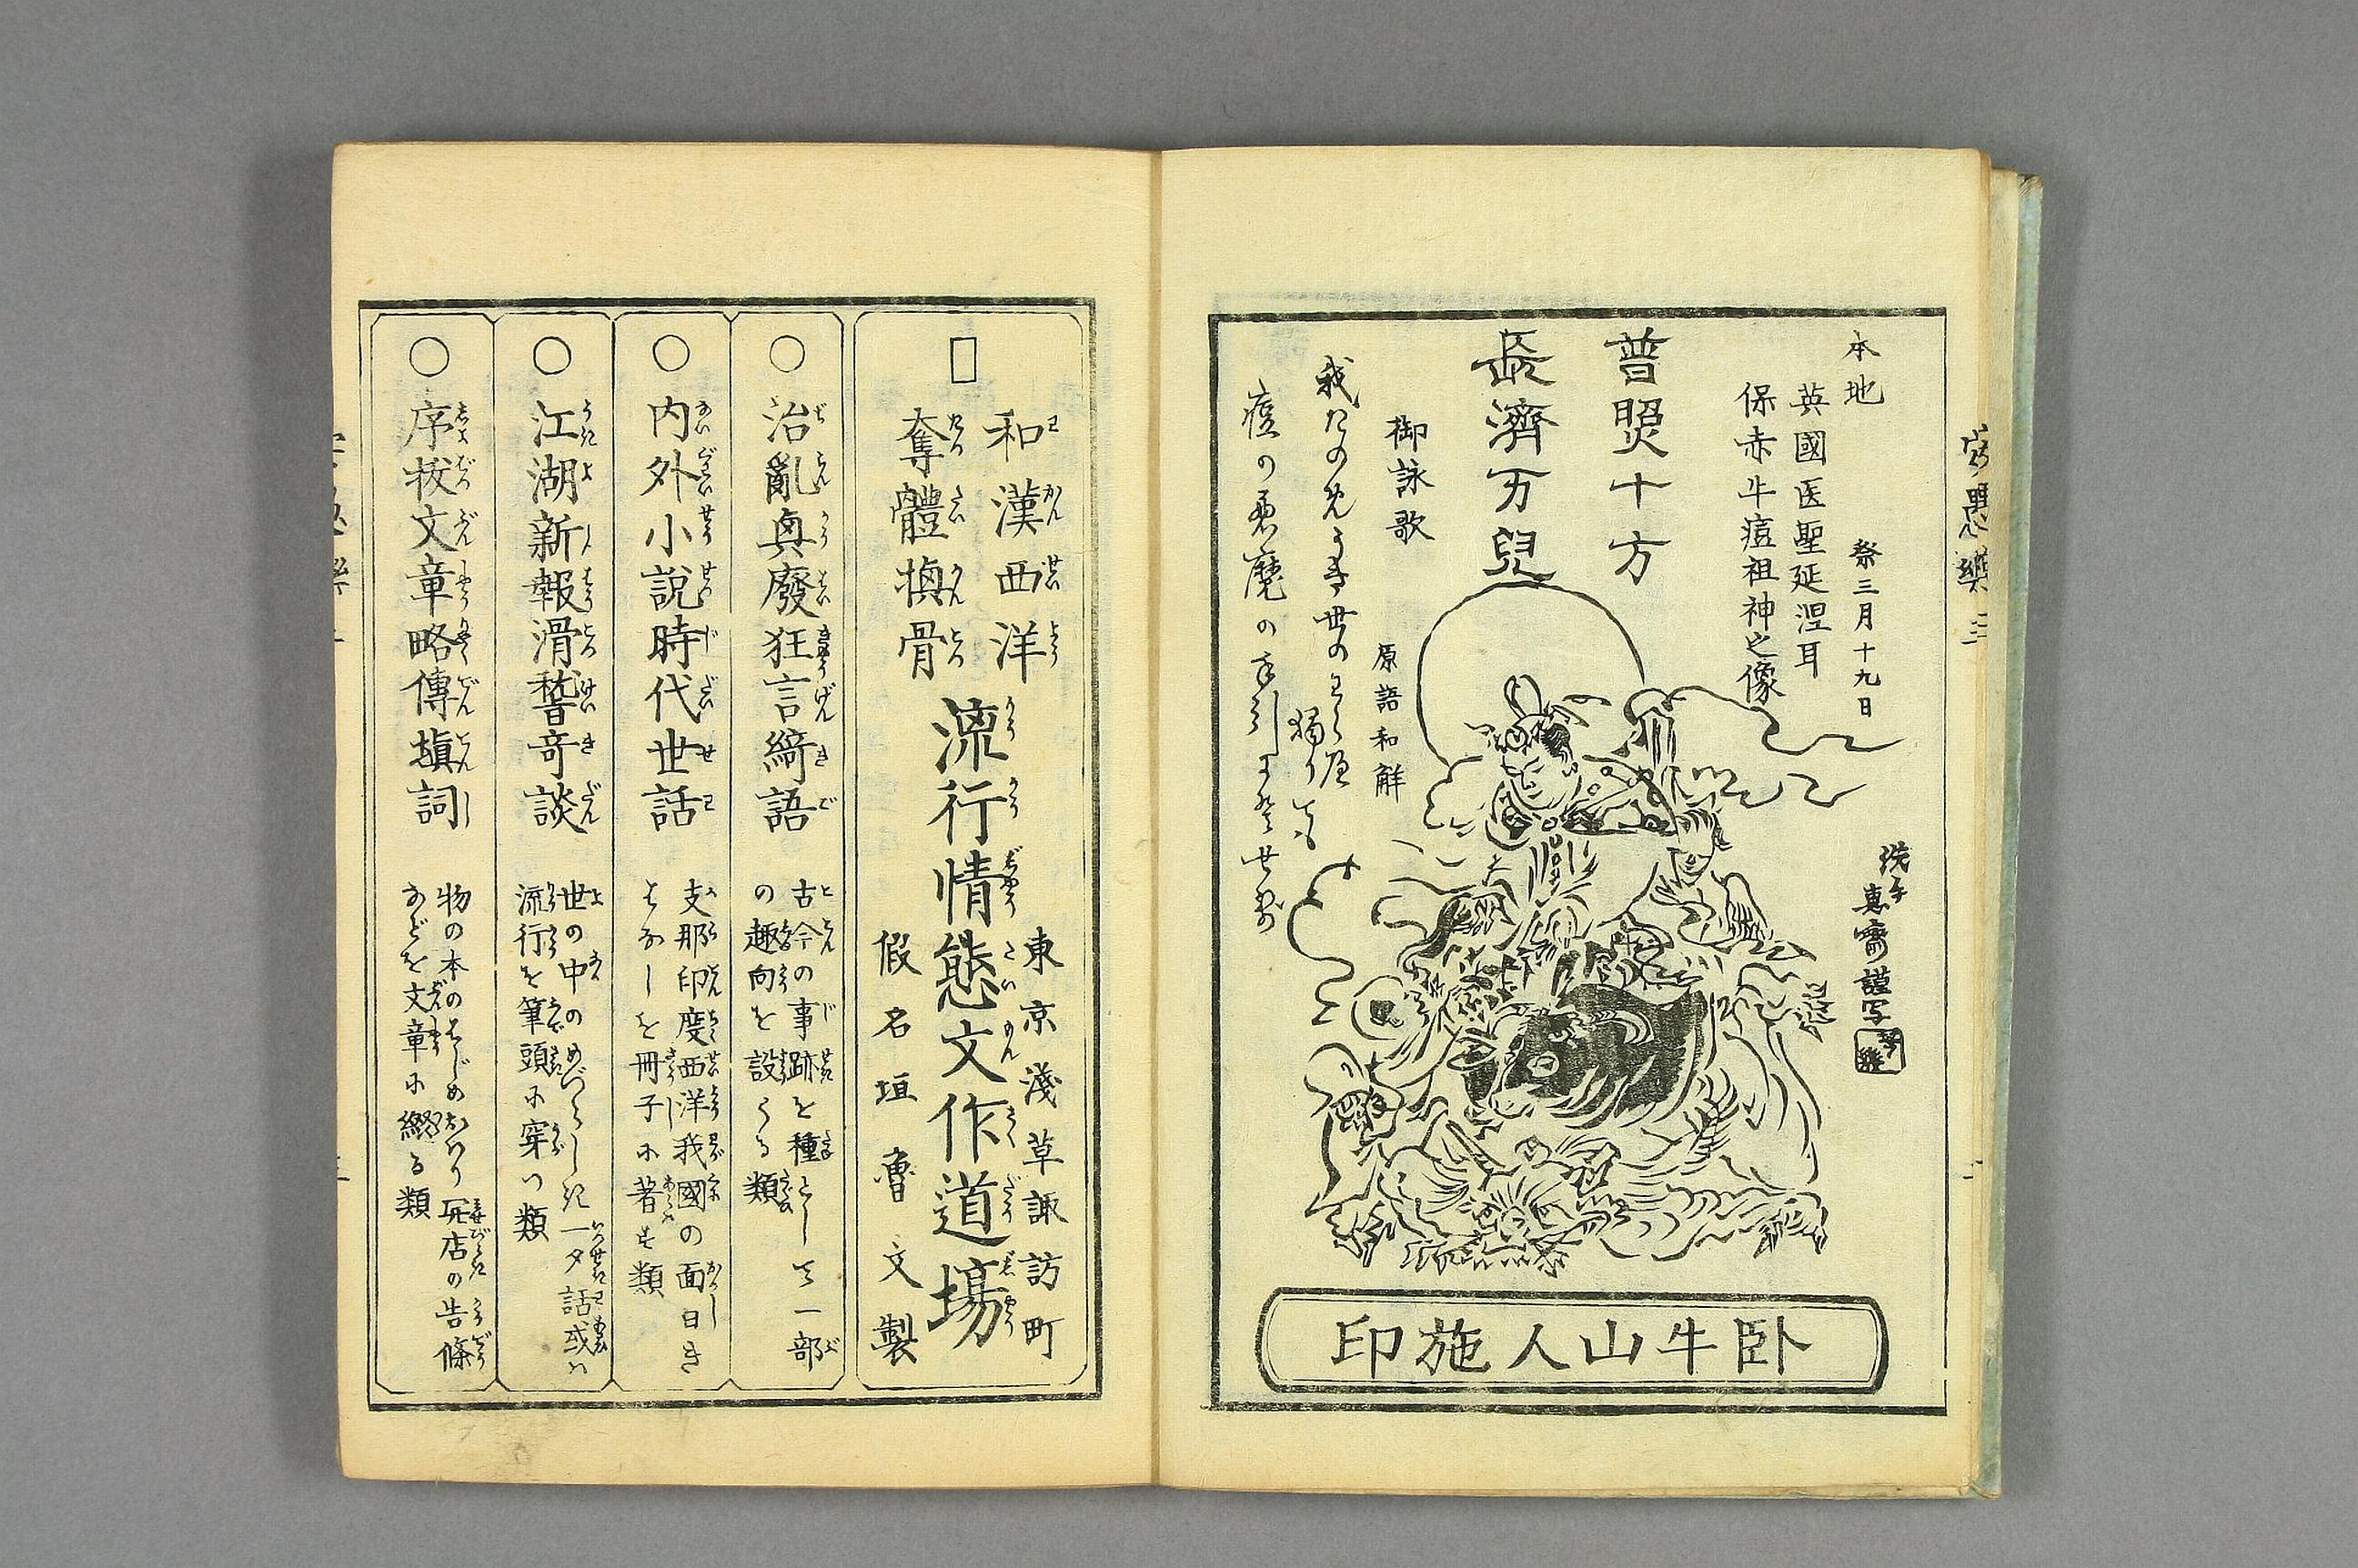 本地
祭三月十九日
英國医聖延涅耳
保赤牛痘祖神之像
普照十方
長濟万兒
御詠歌
原語和解
我たのめ
世の
獨りも
痘の悪魔の
惠齋謹写
卧牛山人施印
安愚樂 三
和漢西洋
奪體換骨
流行情態文作道場
東京淺草諏訪町
假名垣魯文製
○治亂興廢狂言綺語
古今の事跡を種として一部
の趣向を設くる類
○内外小説時代世話
支那印度西洋我國の面白き
はなしを冊子に著す類
○江湖新報滑稽奇談
世の中のめづらしき一夕話或ハ
流行を筆頭に穿つ類
○序拔文章略傳塡詞
物の本のはじめおわり 店の告條
などを文章に綴る類